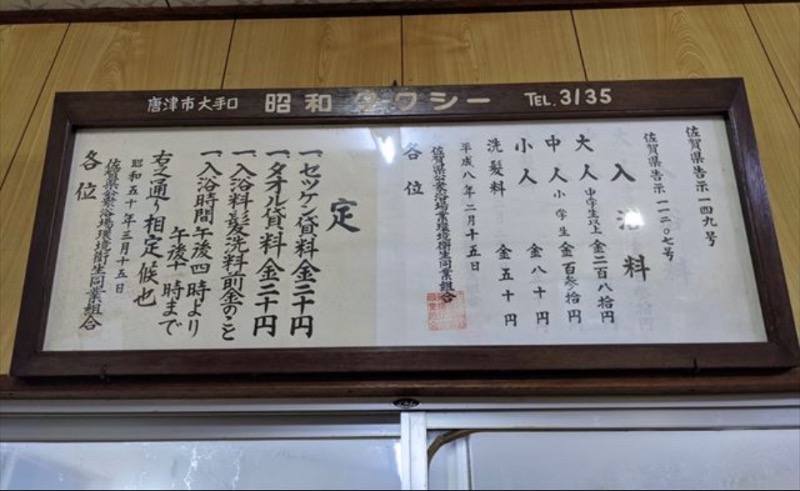 唐津市大手口 昭和タクシー TEL.3135
佐賀県告示一四九号
佐賀県告示一二〇七号
入浴料
大人 中学生以上 金二百八拾円
中人 小学生 金百参拾円
小人 金八十円
洗髪料 金五十円
平成八年二月十五日
佐賀県公衆浴場業環境衛生同業組合
各位
定
一、セッケン貸料金二十円
一、タオル貸料金二十円
一、入浴料髪洗料前金のこと
一、入浴時間午後四時より
午後十時まで
右之通り相定候也
昭和五十年三月十五日
佐賀県公衆浴場環境衛生同業組合
各位